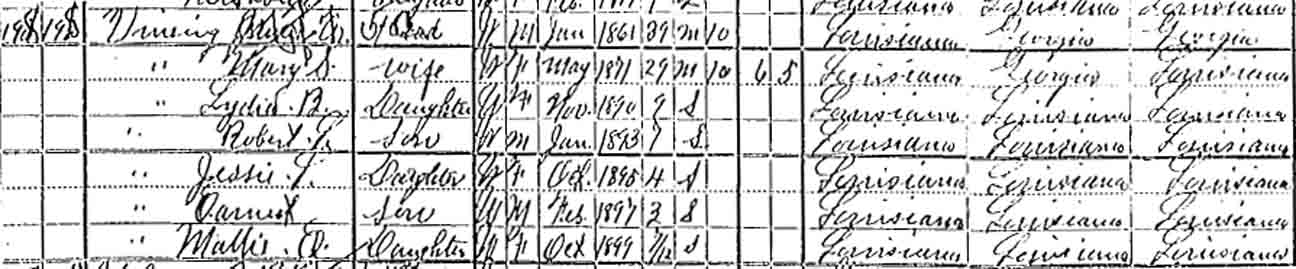 198 198 Vining Head W M Jan 1861 39 M 10 Louisiana Georgia Georgia
" Mary S. Wife W F May 1871 29 M 10 6 5 Louisiana Georgia Louisiana
" Lydia B. Daughter W F Nov. 1890 9 S Louisiana Louisiana Louisiana
" Robert T. Son W M Jan. 1893 7 S Louisiana Louisiana Louisiana
" Jessie Daughter W F Oct. 1895 4 S Louisiana Louisiana Louisiana
" Earnest Son W M Feb. 1897 3 S Louisiana Louisiana Louisiana
" Mallie Daughter W F Oct 1899 7/12 S Louisiana Louisiana Louisiana